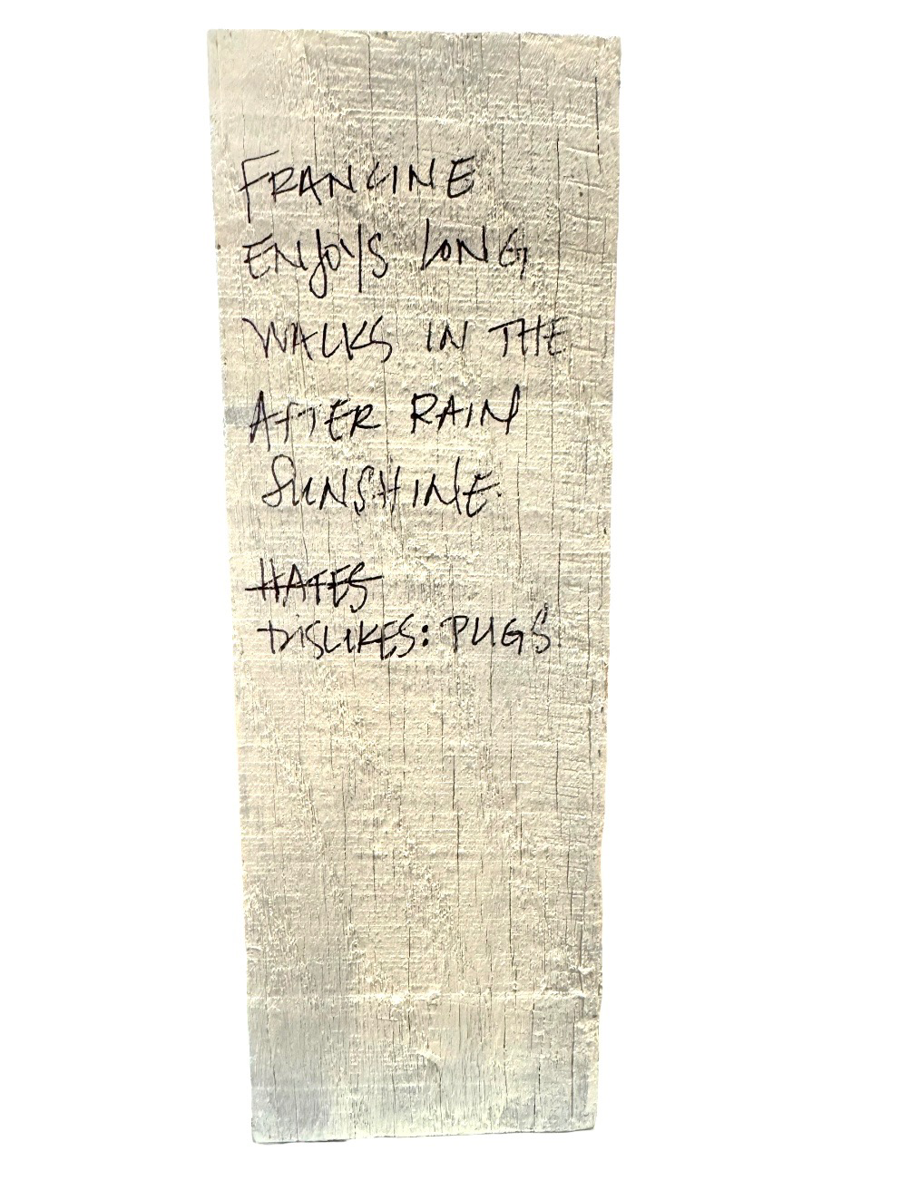 FRANCINE
ENJOYS LONG
WALKS IN THE
AFTER RAIN
SUNSHINE.
HATES
DISLIKES: PUGS